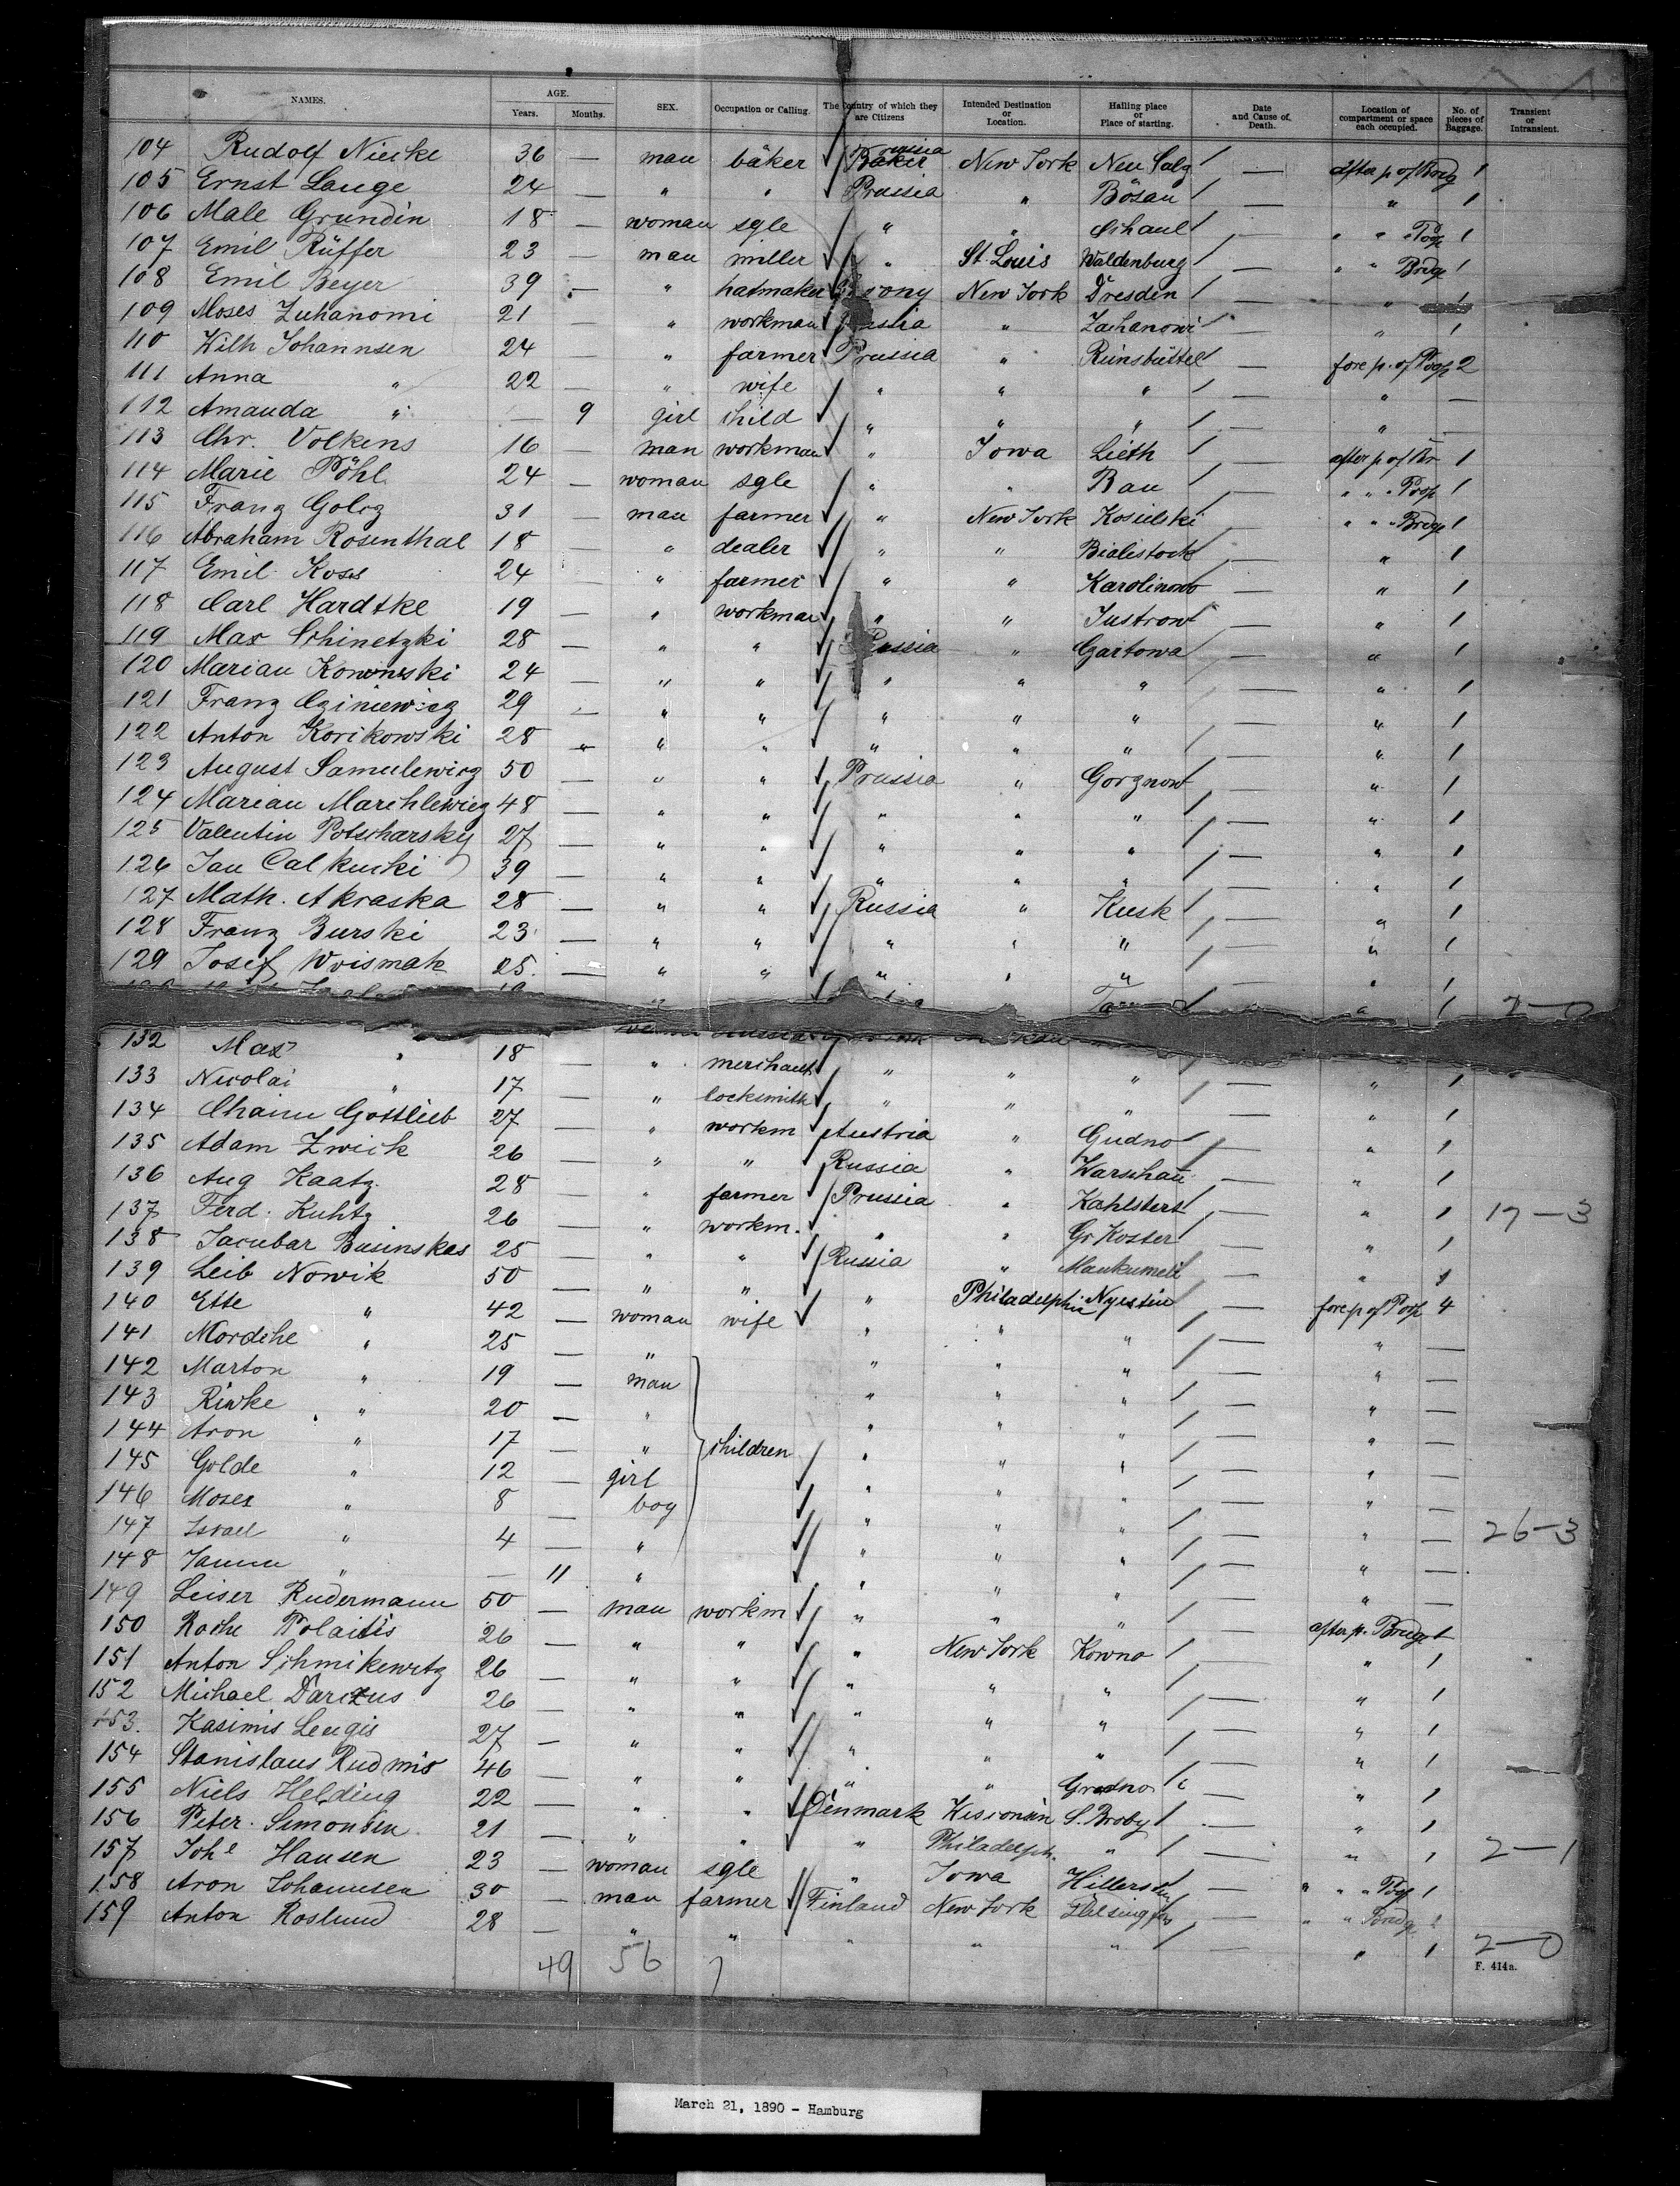 NAMES. AGE. Years. Months. SEX. Occupation or Calling. The Country of which they are Citizens Intended Destination or Location. Hailing place or Place of starting. Date and Cause of Death. Location of compartment or space each occupied. No. of pieces of Baggage. Transient or Intransient.
104 Rudolf Niecke 36 — man bäker New York — 1
105 Ernst Lange 24 — " " Prussia " Bösau — " 1
106 Male Grundin 18 — woman sgle " " Schaul — " " " 1
107 Emil Rüffer 23 — man miller " St. Louis Waldenburg — " " Bredge 1
108 Emil Beyer 39 — " hatmaker New York Dresden — "
109 Moses Zuhanomi 21 — " workman " Zachanowi — " 1
110 Wilh Johannsen 24 — " farmer Prussia " — fore p. of Poop 2
111 Anna " 22 — " wife " " " — " —
112 Amanda " — 9 girl child " " " — " —
113 Chr. Volkens 16 — man workman " Iowa Lieth — after p of Br 1
114 Marie Pöhl 24 — woman sgle " " Rau — " " " Poop 1
115 Franz Golcz 31 — man farmer " New York Kosielski — " " " Bredge 1
116 Abraham Rosenthal 18 — " dealer " " Bialistock — " 1
117 Emil Koss 24 — " farmer " " Karolinowo — " 1
118 Carl Hardtke 19 — " workman " " Justrow — " 1
119 Max Schinetzki 28 — " " Russia " Gartowa — " 1
120 Marian Konowski 24 — " " " " " — " 1
121 Franz Cziniewicz 29 — " " " " " — " 1
122 Anton Korikowski 28 — " " " " " — " 1
123 August Samulewicz 50 — " " Prussia " Gorznow — " 1
124 Marian Marchlewicz 48 — " " " " " — " 1
125 Valentin Potscharsky 27 — " " " " " — " 1
126 Jan Calkucki 39 — " " " " " — " 1
127 Math. Akraska 28 — " " Russia " Kusk — " 1
128 Franz Burski 23 — " " " " " — " 1
129 Josef Woismak 25 — " " " " " — " 1
2—0
132 Max " 18 — " merchant " " " — " 1
133 Nicolai " 17 — " locksmith " " " — " 1
134 Chaim Gottlieb 27 — " workm Austria " Gudno — " 1
135 Adam Zwick 26 — " " Russia " Warschau — " 1
136 Aug Kaatz 28 — " farmer Prussia " — " 1 17—3
137 Ferd. Kuhtz 26 — " workm. " " Gr Koster — " 1
138 Jacubar Businskas 25 — " " Russia " — " 1
139 Leib Nowik 50 — " " " Philadelphia Nyestin — fore p of Poop 4
140 Ette " 42 — woman wife " " " — " —
141 Mordche " 25 — " " " " — " —
142 Marton " 19 — man " " " — " —
143 Riwke " 20 — " " " " — " —
144 Aron " 17 — " children " " " — " —
145 Golde " 12 — girl " " " — " —
146 Moses " 8 — boy " " " — " — 26—3
147 Israel " 4 — " " " " — " —
148 " — 11 " " " " — " —
149 Leiser Rudermann 50 — man workm " " " — after p. Bredge 1
150 Roche Polaitis 26 — " " " New York Kowno — " 1
151 Anton Schmikewitz 26 — " " " " " — " 1
152 Michael Darizus 26 — " " " " " — " 1
153. Kasimis Leugis 27 — " " " " " — " 1
154 Stanislaus Rudmis 46 — " " " " Grodno — " 1
155 Niels Helding 22 — " " Denmark Wisconsin S. Broby — " 1
156 Peter Simonsen 21 — " " " Philadelph. " — " 1 2—1
157 Johe Hansen 23 — woman sgle " Iowa — " " " Poop 1
158 Aron Johannsen 30 — man farmer Finland New York Helsingfos — " " Bredge 1
159 Anton Roslund 28 — " " " " " — " 1 2—0
49 56 7
F. 414a.
March 21, 1890 - Hamburg